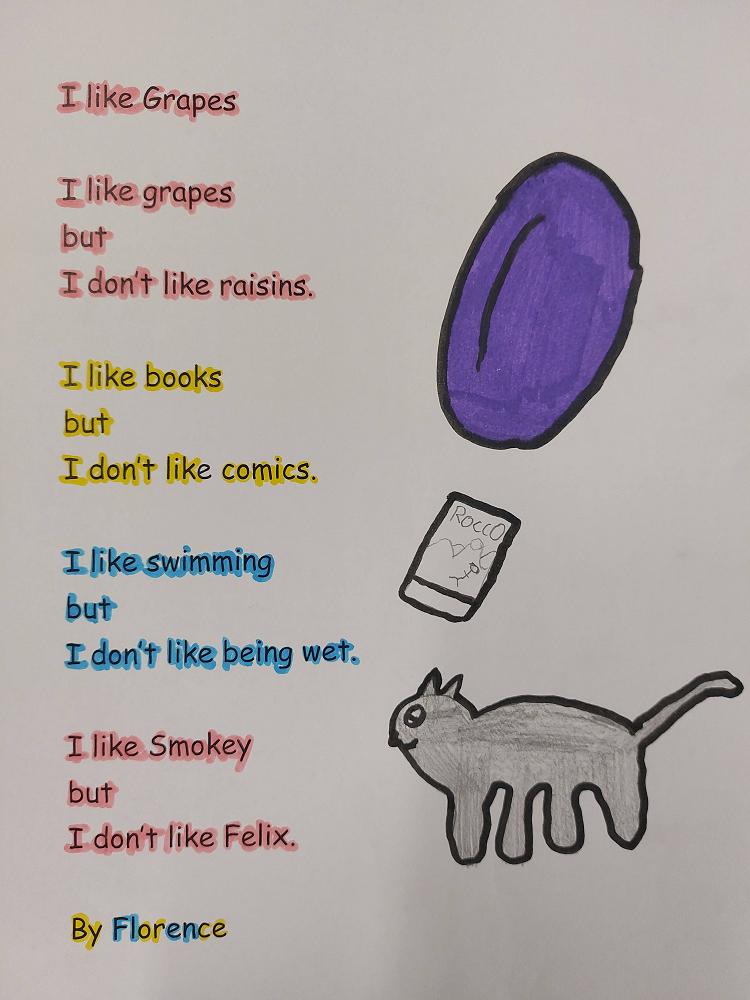 I like Grapes
I like grapes
but
I don't like raisins.
I like books
but
I don't like comics.
ROCCO
I like swimming
but
I don't like being wet.
I like Smokey
but
I don't like Felix.
By Florence